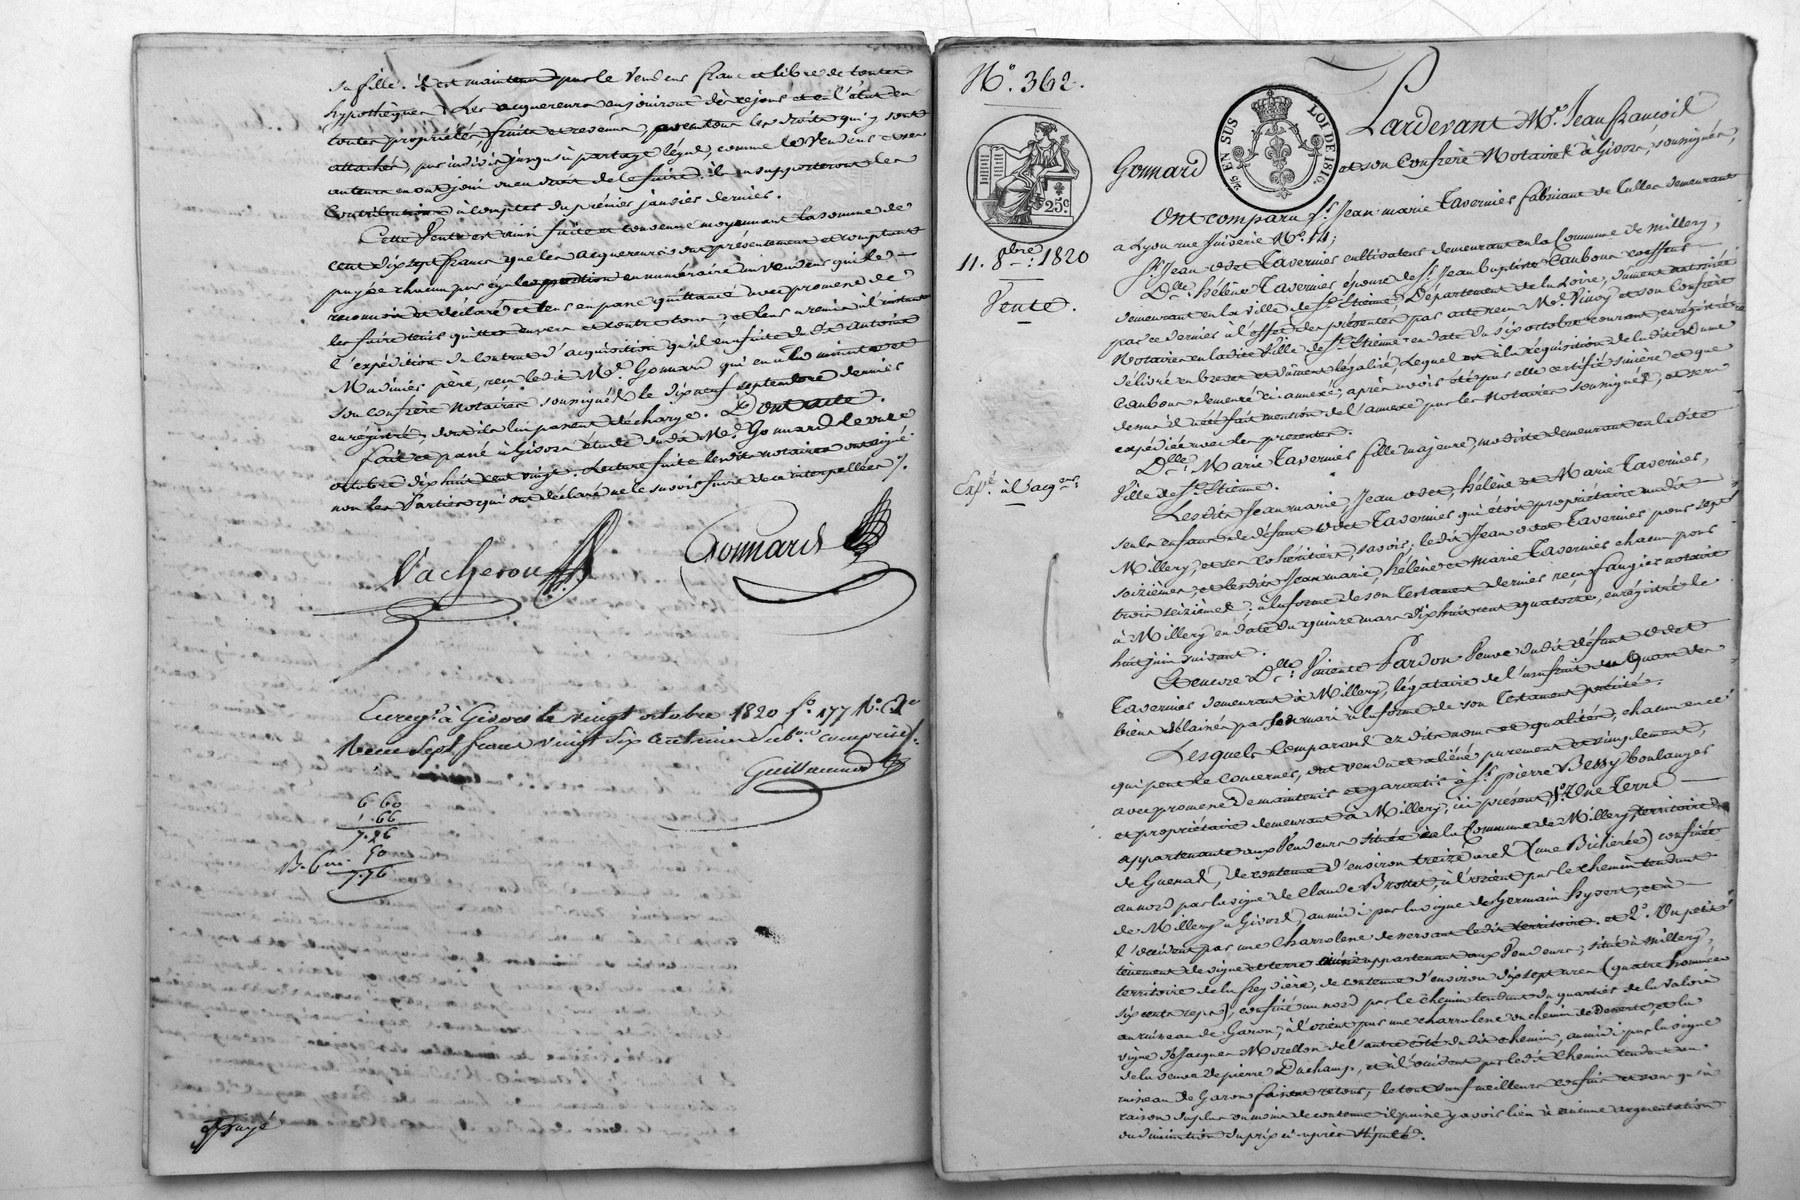 sa fille. il est maintenu par le Vendeur franc et libre de toutes
hypothèques. Les acquereurs en jouiront dès ce jour et en l'état en
toutes propriétés, fruits et revenus, avec tous les droits qui y sont
attachés, par indivis jusqu'à partage légal, comme le Vendeur et ses
auteurs en ont joui ou eu droit de le faire; ils en supporteront les
Contributions à compter du prémier janvier dernier.
Cette Vente est ainsi faite et convenue moyennant la somme de
cent dix sept francs que les acquereurs ont présentement et comptant
payée chacun par égale portion en numéraire au vendeur qui le
reconnoit et déclare et les en passe quittance avec promesse de
les faire tenir quittes envers et contre tous, et leur a remis à l'instant
l'expédition du Contrat d'acquisition qu'il en a faite du Sr. Antoine
père, reçu ledit Me. Gonnard qui en a la minute et
son confrère Notaires soussignés le dix neuf septembre dernier
enregistré, dont ils lui passent décharge. Dont acte.
Fait et passé à Givors étude dudit Me. Gonnard le onze
octobre dix huit cent vingt. Lecture faite lesdits notaires ont signé
non les Parties qui ont déclaré ne le savoir faire de ce interpellées ./.
Vacheron
Gonnard
Enregé. à Givors le vingt octobre 1820 fo. 177 Ro. Ce.
Reçu Sept francs vingt six centimes Subon. comprise
Guillaumes
6 60
. 66
7.26
50
7.76
N°. 362.
25 EN SUS
LOI DE 1816.
25c
11. 8bre. 1820
Vente.
Expé. à l'acqer.
Pardevant Me. Jean françois
Gonnard et son Confrère Notaires à Givors, soussignés,
Ont comparu Sr. Jean marie Tavernier fabricant de Tulles demeurant
à Lyon rue Juiverie N°. 14;
Sr. Jean odet Tavernier cultivateur demeurant en la Commune de Millery,
Dlle. Hélène Tavernier épouse de Sr. Jean baptiste Caubour coeffeur
demeurant en la ville de St. Etienne, Département de la Loire, dûment autorisée
par ce dernier à l'effet des présentes par acte reçu Me. Vinoy et son Confrère
Notaires en ladite Ville de St. Etienne en date du six octobre courant, enregistré
délivré en brevet et dûment légalisé, Lequel est à la réquisition de ladite dame
Caubour demeuré ci-annexé, après avoir été par elle certifié sincère et que
dessus il a été fait mention de l'annexe par les Notaires soussignés, et sera
expédié avec les présentes.
Dlle. Marie Tavernier fille majeure, modiste demeurant en ladite
Ville de St. Etienne.
Lesdits Jean marie, Jean odet, hélène et Marie Tavernier,
seuls enfans de défunt odet Tavernier qui étoit propriétaire audit
Millery, et ses cohéritiers, savoir; ledit Jean odet Tavernier pour sept
seizièmes, et lesdits Jean marie, hélène et marie Tavernier chacun pour
trois seizièmes, à la forme de son Testament dernier reçu faugier notaire
à Millery en date du quinze mars dix huit cent quatorze, enregistré le
huit juin suivant.
Et encore Dlle. Pardon Veuve dudit défunt Odet
Tavernier demeurant à Millery, légataire de l'usufruit du Quart des
biens délaissés par son mari à la forme de son Testament précité.
Lesquels Comparans ez dits noms et qualités, chacun en ce
qui peut le Concerner, ont vendu et aliéné purement et simplement,
avec promesse de maintenir et garantir à Sr. pierre Bessy boulanger
et propriétaire demeurant à Millery, ici présent, 1°. Une Terre
appartenante aux Vendeurs située en la Commune de Millery, territoire
de Guenas, de contenue d'environ treize ares (une Bicherée) confinée
au nord par la vigne de Claude Brottet, à l'orient par le chemin tendant
de Millery à Givors, au midi par la vigne de Germain hyvert, et à
l'occident par une Charrolene desservant ledit territoire. et 2°. Un petit
tènement de vigne et terre appartenant aux Vendeurs, situé à Millery,
territoire de la freydière, de contenue d'environ dix sept ares (quatre hommées
six cents ceps), confiné au nord par le chemin tendant du quartier de la Valora
au ruisseau de Garon; à l'orient par une charrolene ou chemin de Desserte, et la
vigne de Jacques Morellon de l'autre côté dudit chemin, au midi par la vigne
de la veuve de pierre Duchamp, et à l'occident par ledit Chemin tendant au
ruisseau de Garon faisant retour; le tout sauf meilleurs confins et sans qu'à
raison du plus ou moins de contenue il puisse y avoir lieu à aucune augmentation
ou diminution du prix ci-après stipulé.